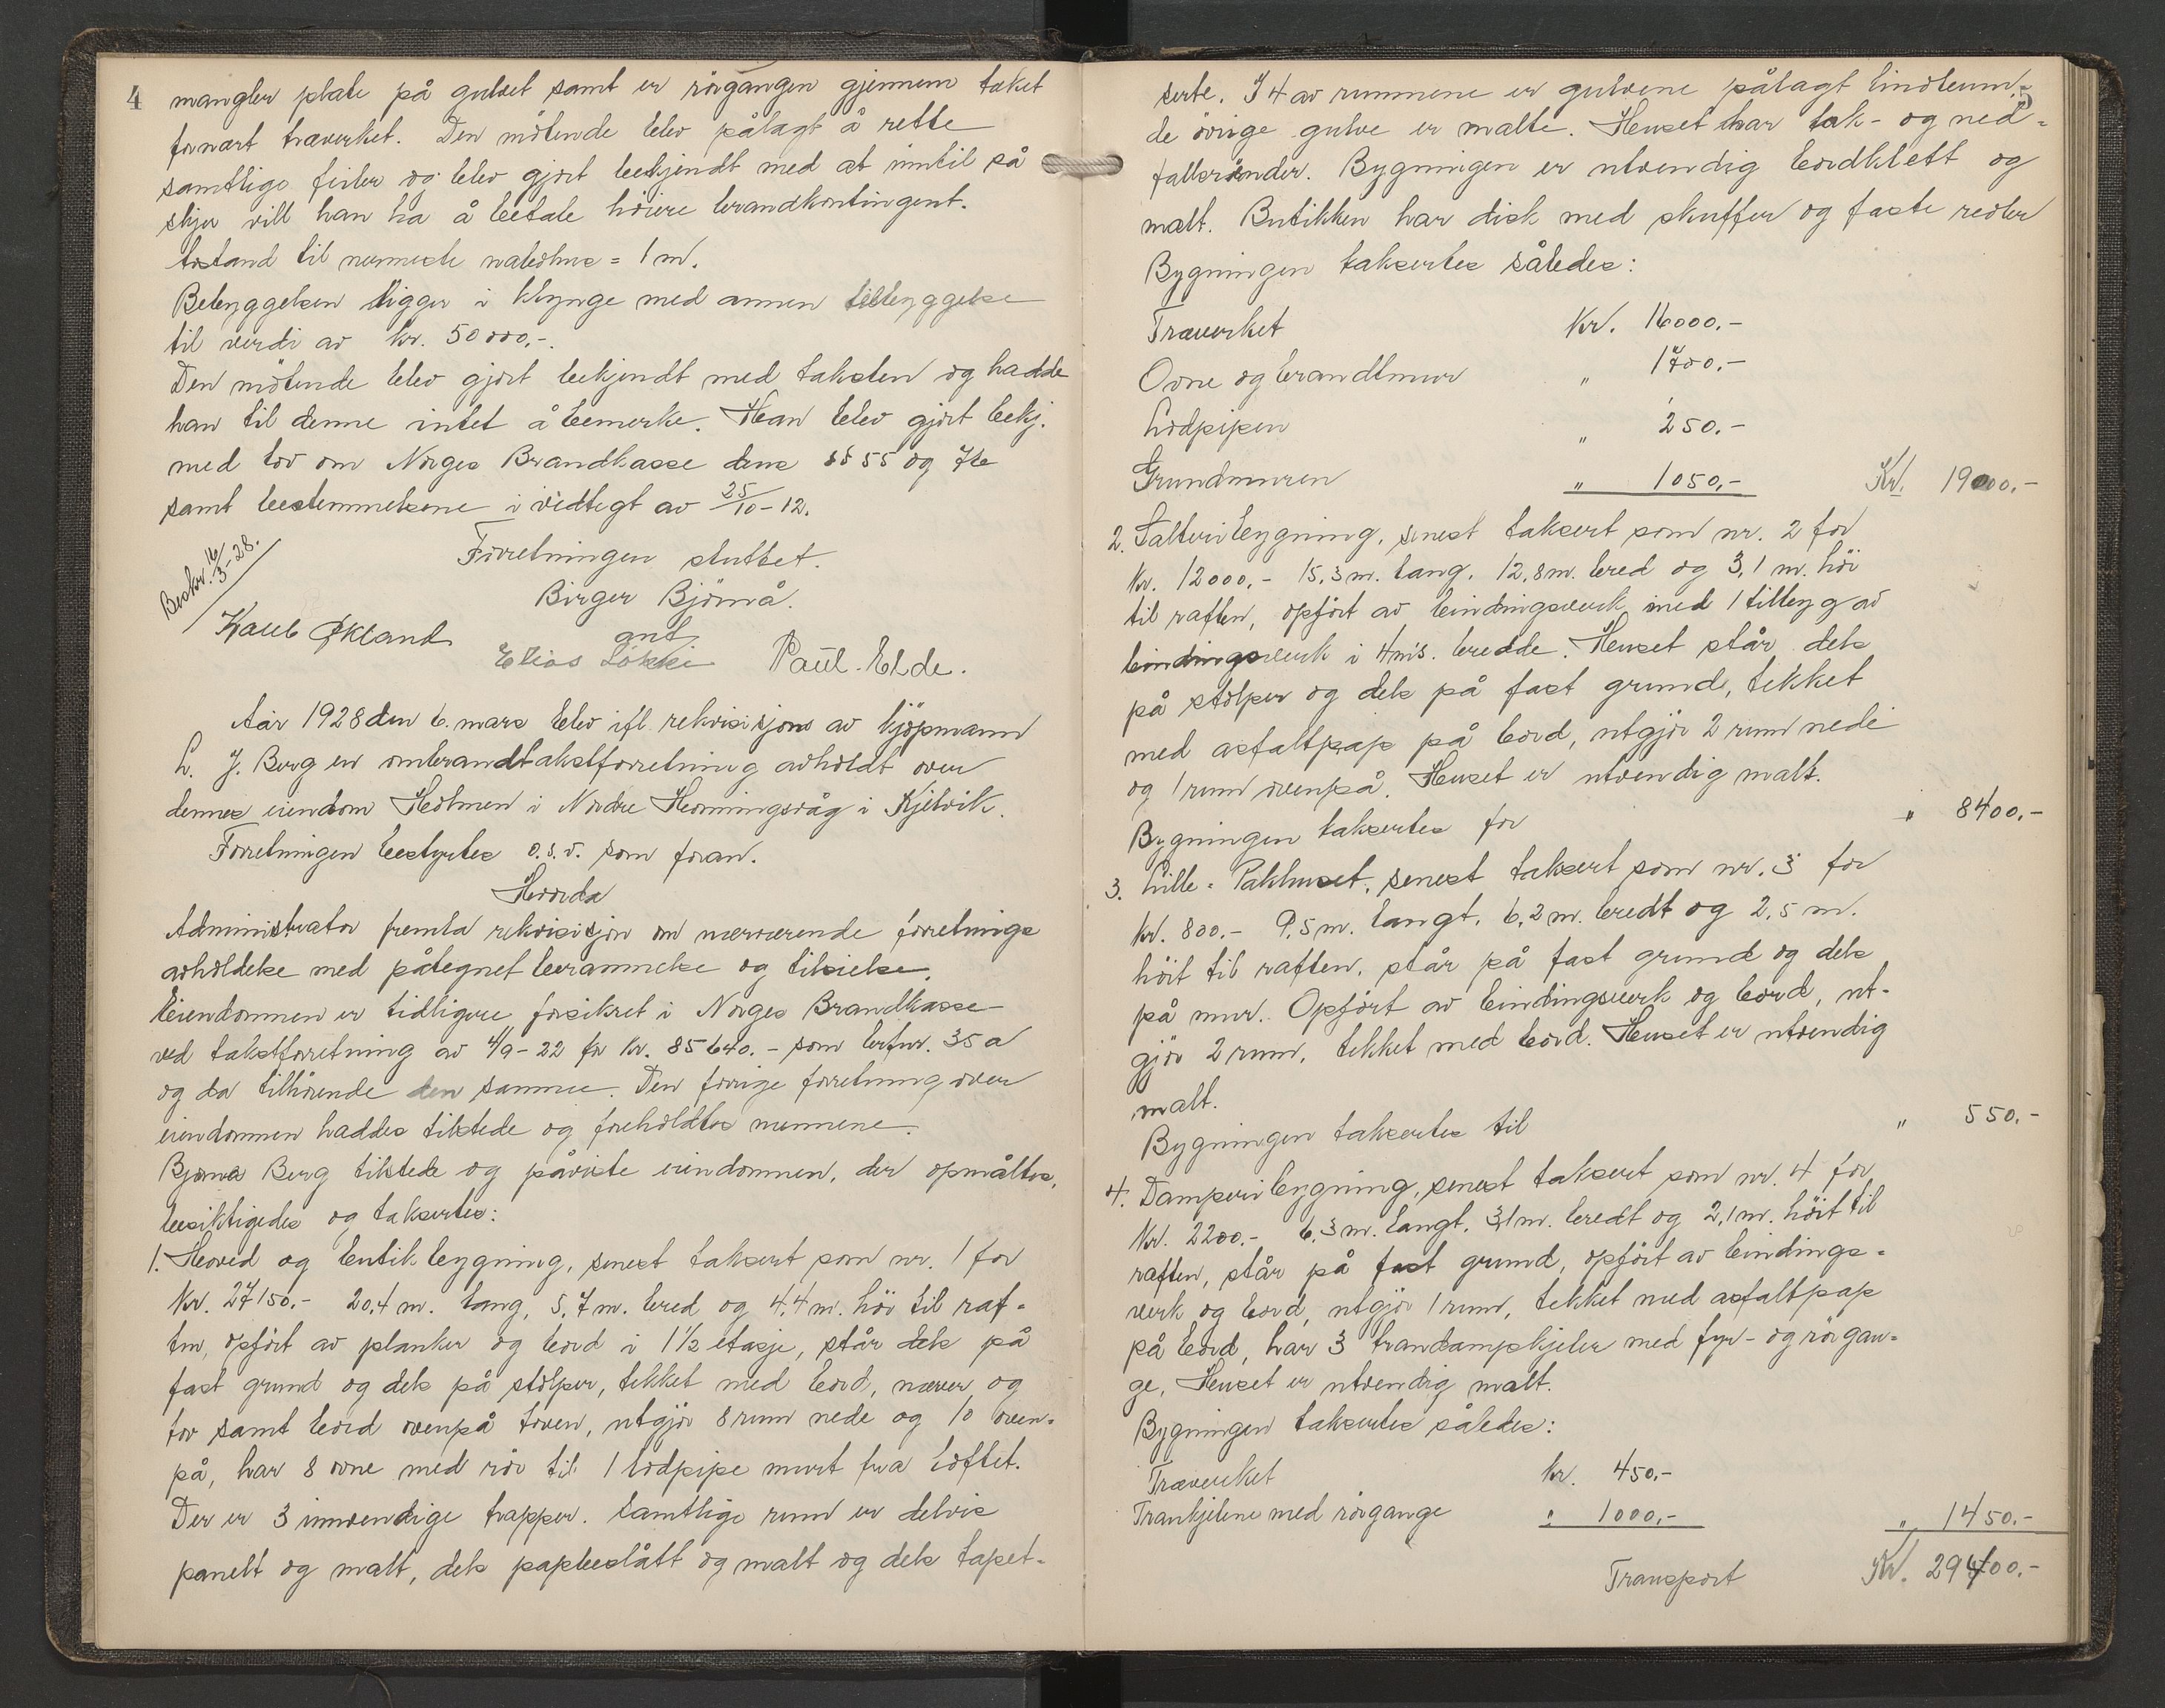 4
mangler plate på gulvet samt er rörgangen gjennem taket
for nært træverket. Den mötende blev pålagt å rette
samtlige feiler og blev gjort bekjendt med at inntil så
skjer vill han ha å betale höiere brandkontingent.
Avstand til nærmeste nabohus = 1 m.
Bebyggelsen ligger i klynge med annen bebyggelse
til verdi av kr. 50000,-.
Den mötende blev gjort bekjendt med taksten og hadde
han til denne intet å bemerke. Han blev gjort bekj.
med lov om Norges Brandkasse dens §§ 55 og 76
samt bestemmelsene i vedtegt av 25/10-12.
Forretningen sluttet.
Beskr. 16/3-28.
Birger Björnå.
Karl Økland
ant
Elias Løkke Paul Elde.
Aar 1928 den 6. mars blev ifl. rekvisisjon av kjöpmann
L. J. Berg en ombrandtakstforretning avholdt over
dennes eiendom Holmen i Nordre Honningsvåg i Kjelvik.
Forretningen bestyrtes o.s.v. som foran.
Hvorda
Administrator fremla rekvisisjon om nærværende forretnings
avholdelse med påtegnet berammelse og tilsielse.
Eiendommen er tidligere forsikret i Norges Brandkasse
ved takstforretning av 4/9-22 for kr. 85640.- som brfnr. 35 a
og da tilhörende den samme. Den forrige forretning over
eiendommen haddes tilstede og foreholdtes mennene.
Bjarne Berg tilstede og påviste eiendommen, der opmåltes,
besiktigedes og taksertes:
1. Hoved og butikbygning, senest taksert som nr. 1 for
Kr. 27150.- 20,4 m. lang, 5,7 m. bred og 4,4 m. höi til raf-
ten, opfört av planker og bord i 1½ etasje, står dels på
fast grund og dels på stolper, tekket med bord, never og
torv samt bord ovenpå torven, utgjör 8 rum nede og 10 oven-
på, har 8 ovne med rör til 1 lodpipe murt fra loftet.
Der er 3 innvendige trapper. Samtlige rum er delvis
panelt og malt, dels papbeslått og malt og dels tapet-
5
serte. I 4 av rummene er gulvene pålagt linoleum,
de övrige gulve er malte. Huset har tak- og ned-
fallsrönder. Bygningen er utvendig bordklett og
malt. Butikken har disk med skuffer og faste reoler
Bygningen taksertes således:
Træverket Kr. 16000.-
Ovne og brandmur " 1700.-
Lodpipen " 250.-
Grundmuren " 1050.- Kr. 19000.-
2. Salteribygning, senest taksert som nr. 2 for
Kr. 12000.- 15,3 m. lang, 12,8 m. bred og 3,1 m. höi
til raften, opfört av bindingsverk med 1 tilbyg av
bindingsverk i 4 m's. bredde. Huset står dels
på stolper og dels på fast grund, tekket
med asfaltpap på bord, utgjör 2 rum nede
og 1 rum ovenpå. Huset er utvendig malt.
Bygningen taksertes for " 8400.-
3. Lille-Pakhuset, senest taksert som nr. 3 for
kr. 800.- 9,5 m. langt, 6,2 m. bredt og 2,5 m.
höit til raften, står på fast grund og dels
på mur. Opfört av bindingsverk og bord, ut-
gjör 2 rum, tekket med bord. Huset er utvendig
malt.
Bygningen taksertes til " 550.-
4. Damperibygning, senest taksert som nr. 4 for
Kr. 2200.- 6,3 m. langt, 3,1 m. bredt og 2,1 m. höit til
raften, står på fast grund, opfört av bindings-
verk og bord, utgjör 1 rum, tekket med asfaltpap
på bord, har 3 trandampkjeler med fyr- og rörgan-
ge. Huset er utvendig malt.
Bygningen taksertes således:
Træverket kr. 450.-
Trankjelene med rörgange " 1000.- " 1450.-
Transport Kr. 29400.-